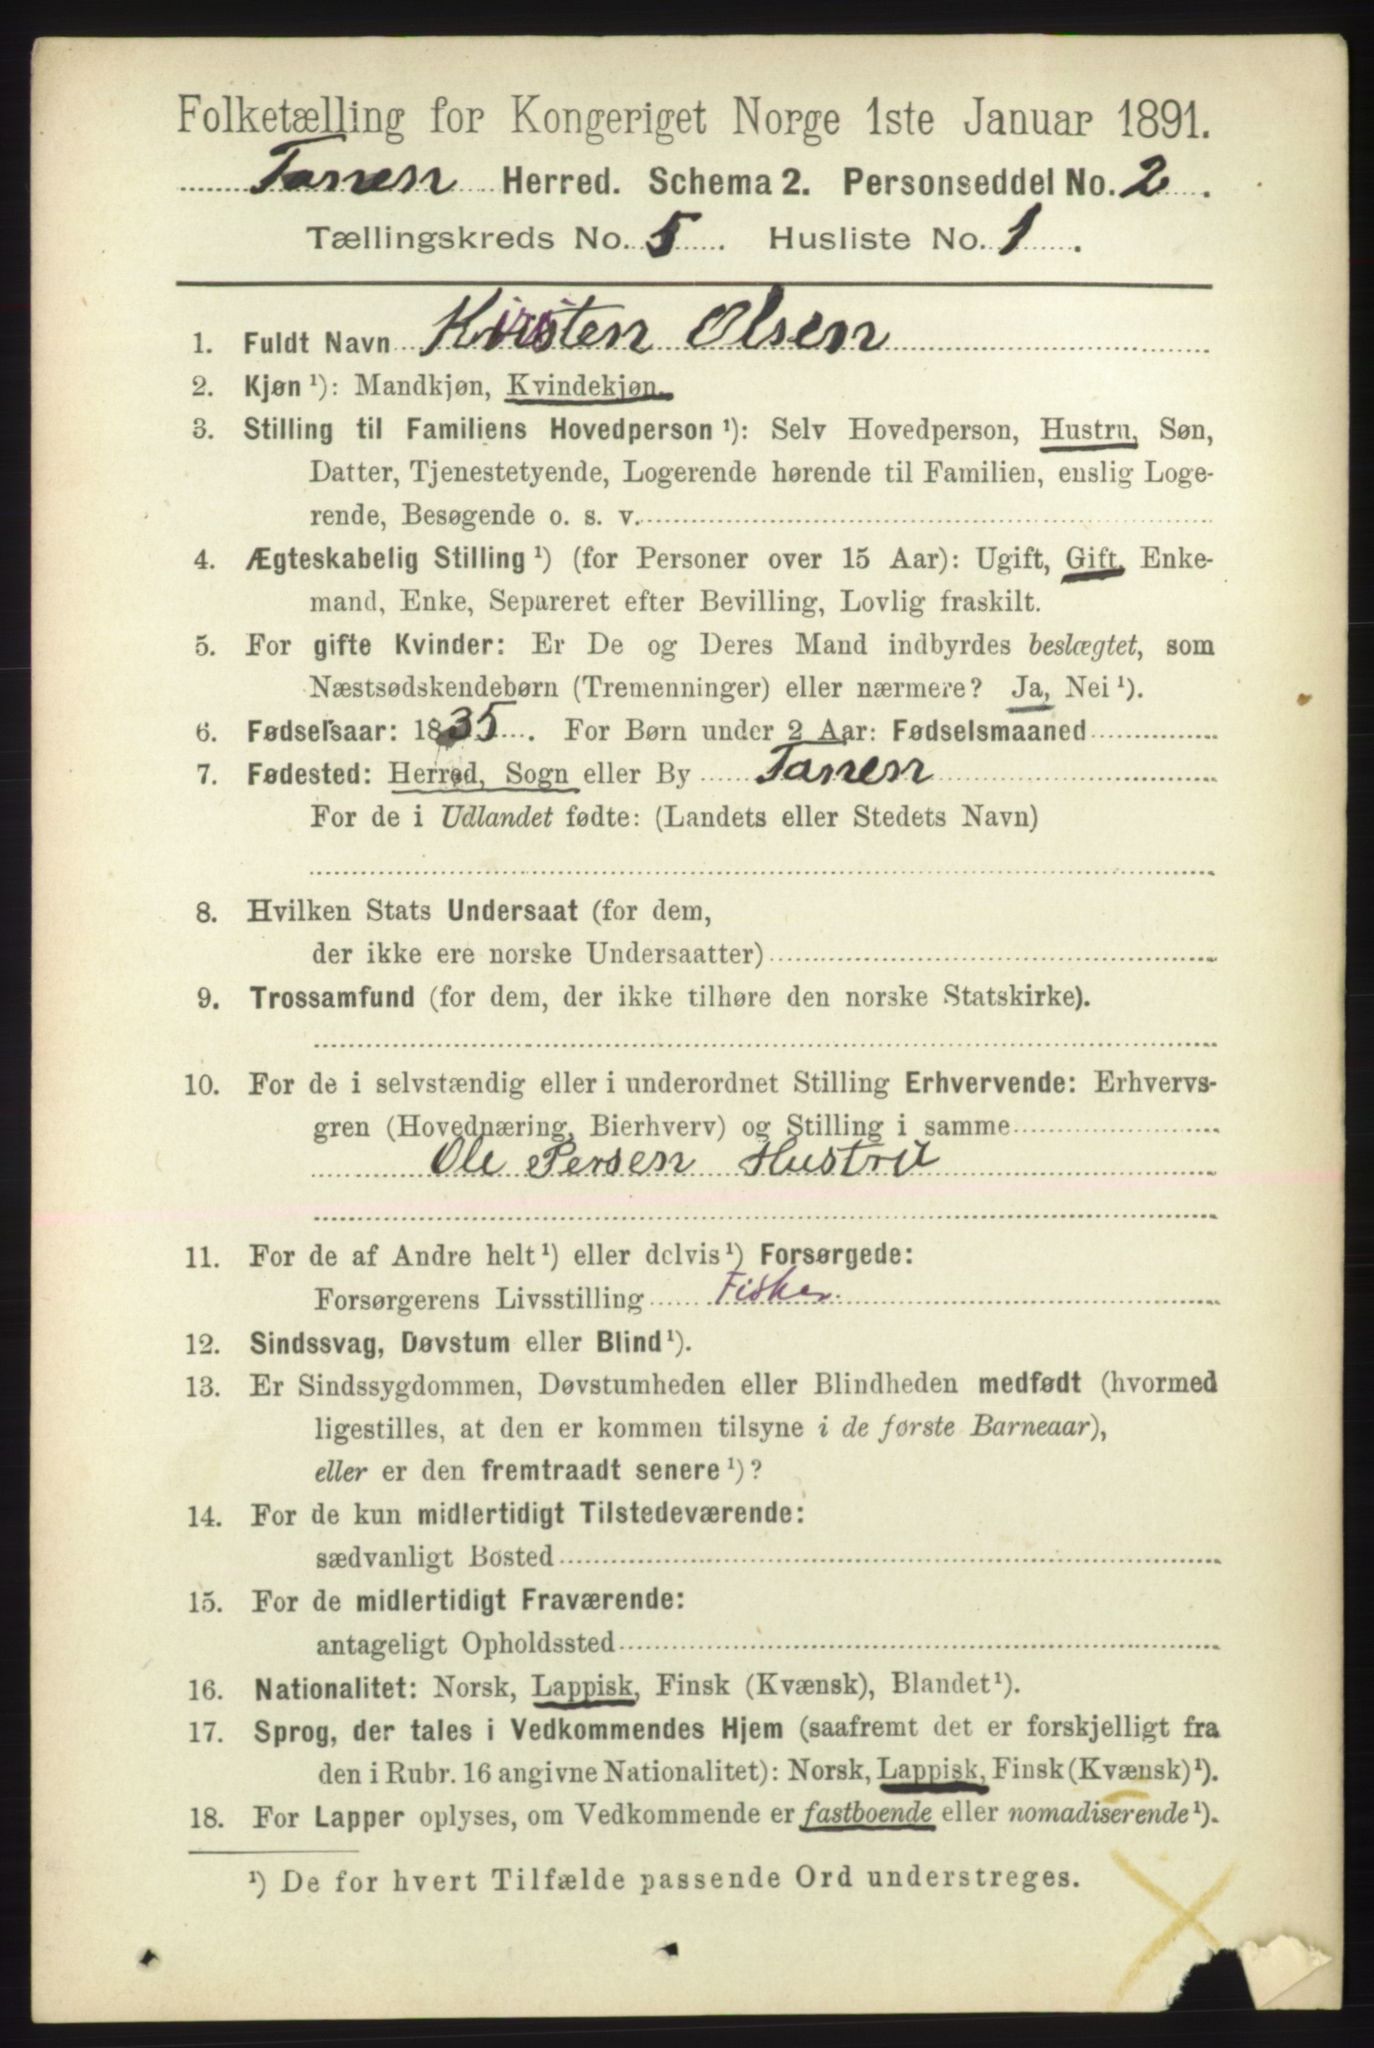 Folketælling for Kongeriget Norge 1ste Januar 1891.
Tanen Herred. Schema 2. Personseddel No. 2.
Tællingskreds No. 5. Husliste No. 1.
1. Fuldt Navn Kirsten Olsen
2. Kjøn ¹): Mandkjøn, Kvindekjøn.
3. Stilling til Familiens Hovedperson ¹): Selv Hovedperson, Hustru, Søn,
Datter, Tjenestetyende, Logerende hørende til Familien, enslig Loge-
rende, Besøgende o. s. v.
4. Ægteskabelig Stilling ¹) (for Personer over 15 Aar): Ugift, Gift, Enke-
mand, Enke, Separeret efter Bevilling, Lovlig fraskilt.
5. For gifte Kvinder: Er De og Deres Mand indbyrdes beslægtet, som
Næstsødskendebørn (Tremenninger) eller nærmere? Ja, Nei ¹).
6. Fødselsaar: 1835. For Børn under 2 Aar: Fødselsmaaned
7. Fødested: Herred, Sogn eller By Tanen
For de i Udlandet fødte: (Landets eller Stedets Navn)
8. Hvilken Stats Undersaat (for dem,
der ikke ere norske Undersaatter)
9. Trossamfund (for dem, der ikke tilhøre den norske Statskirke).
10. For de i selvstændig eller i underordnet Stilling Erhvervende: Erhvervs-
gren (Hovednæring, Bierhverv) og Stilling i samme
Ole Persen Hustru
11. For de af Andre helt ¹) eller delvis ¹) Forsørgede:
Forsørgerens Livsstilling Fisker.
12. Sindssvag, Døvstum eller Blind ¹).
13. Er Sindssygdommen, Døvstumheden eller Blindheden medfødt (hvormed
ligestilles, at den er kommen tilsyne i de første Barneaar),
eller er den fremtraadt senere ¹)?
14. For de kun midlertidigt Tilstedeværende:
sædvanligt Bosted
15. For de midlertidigt Fraværende:
antageligt Opholdssted
16. Nationalitet: Norsk, Lappisk, Finsk (Kvænsk), Blandet ¹).
17. Sprog, der tales i Vedkommendes Hjem (saafremt det er forskjelligt fra
den i Rubr. 16 angivne Nationalitet): Norsk, Lappisk, Finsk (Kvænsk) ¹).
18. For Lapper oplyses, om Vedkommende er fastboende eller nomadiserende ¹).
¹) De for hvert Tilfælde passende Ord understreges.